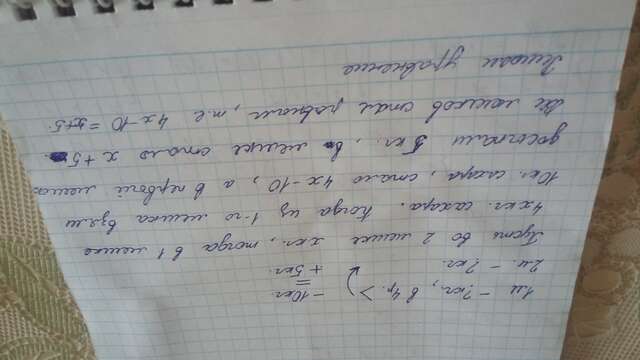 1м - ?кг., в 4р. > -10кг.
2м. - ?кг. + 5кг.
Пусть во 2 мешке х кг., тогда в 1 мешке
4х кг. сахара. Когда из 1-го мешка взяли
10кг. сахара, стало 4х-10, а в первый мешок
досыпали 5 кг., в мешке стало х+5
Вес мешков стал равным, т.е 4х-10=х+5.
Решаем уравнение